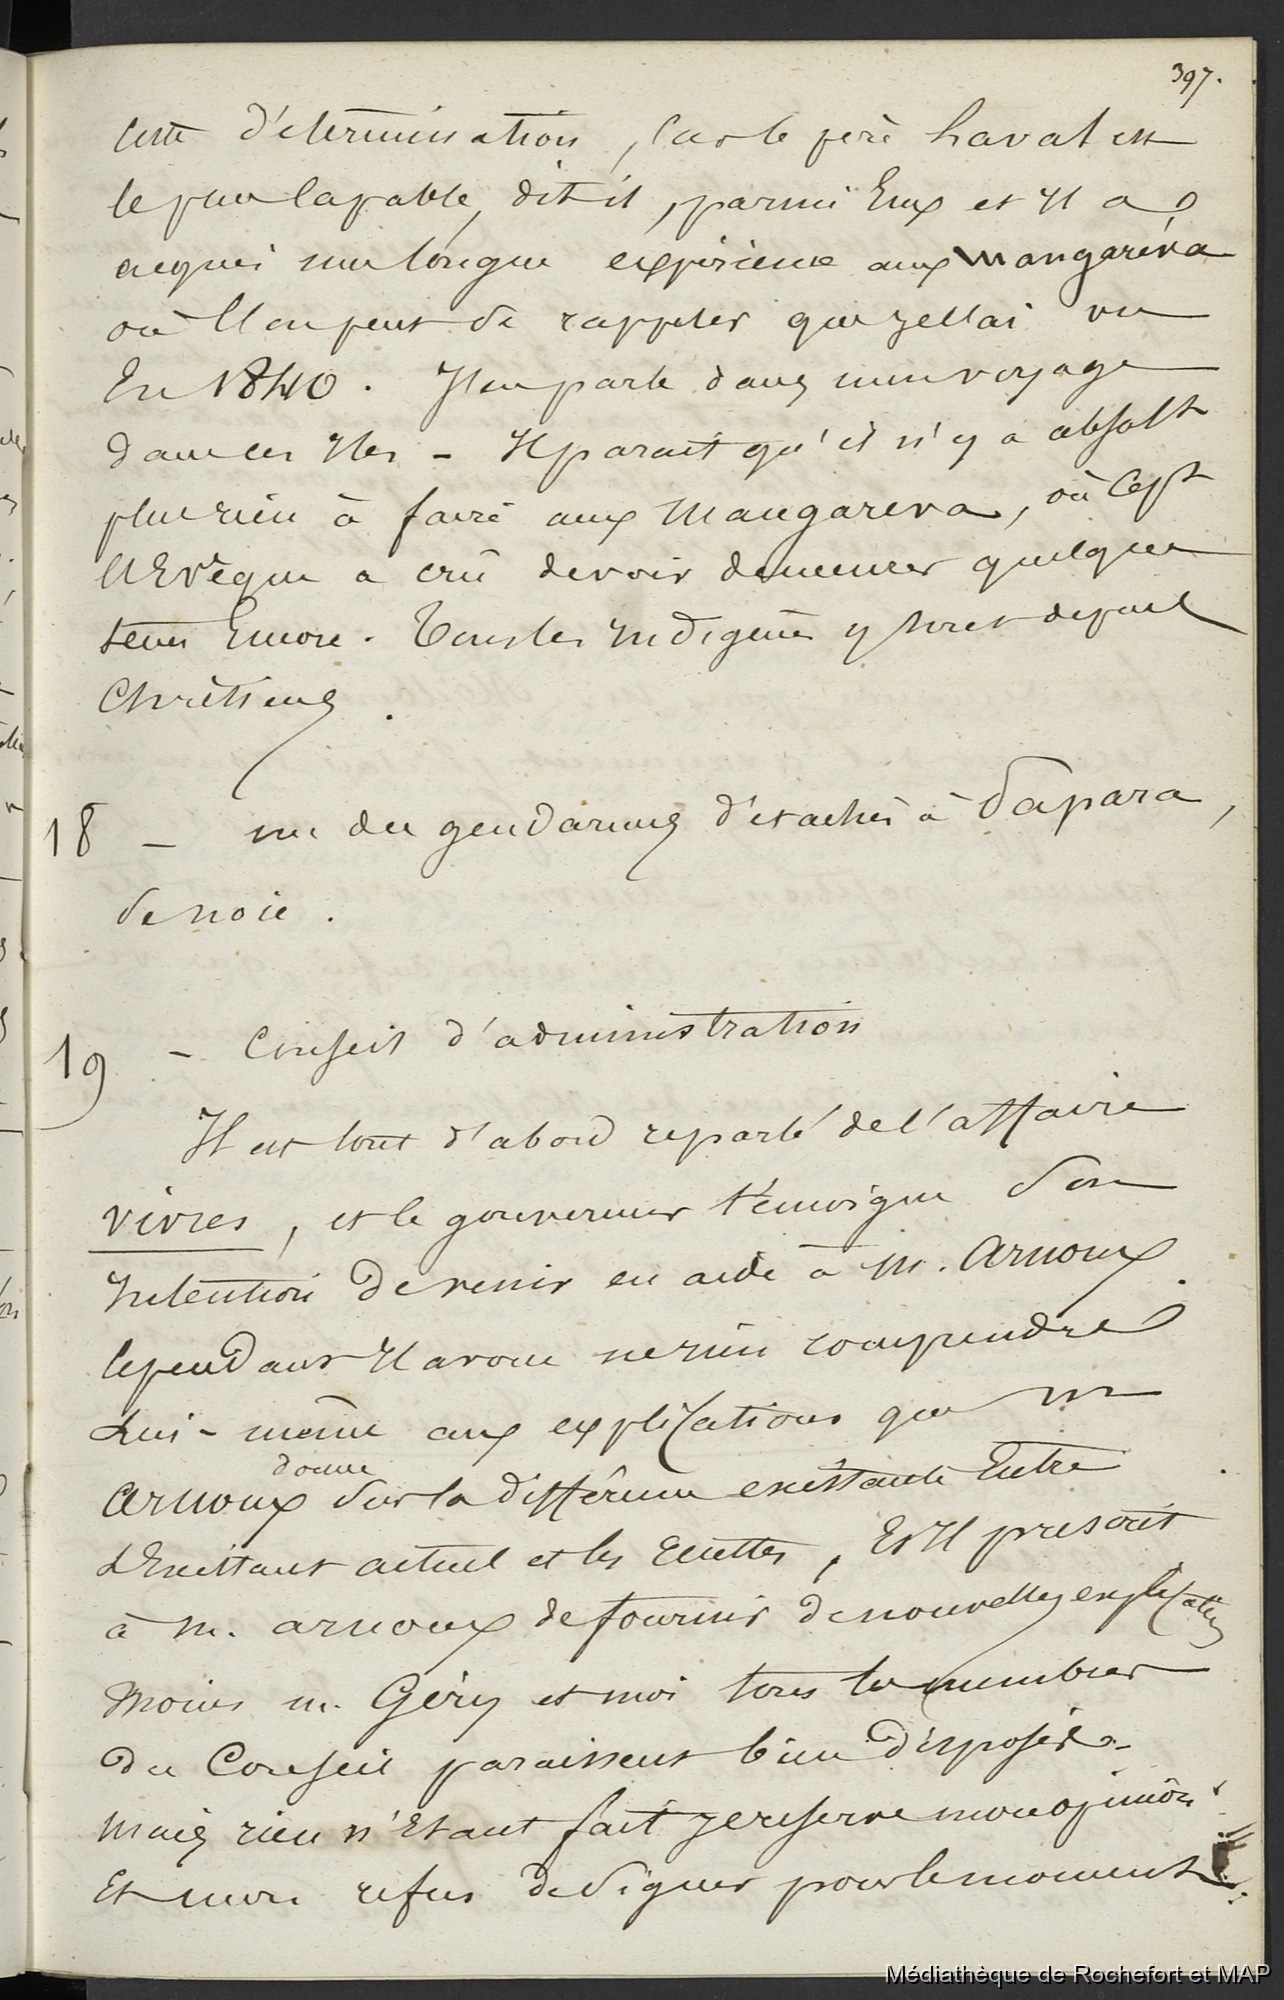 397.
cette détermination, car le père Laval est
le plus capable, dit-il, parmi Eux et Il a
acquis une longue expérience aux Mangaréva
où l'on peut se rappeler que je l'ai vu
En 1840. J'en parle dans mon voyage
dans ces Iles - Il parait qu'il n'y a absolt
plus rien à faire aux Mangareva, où cept
l'Evêque a crû devoir demeurer quelque
tems Encore. Tous les Indigènes y sont depuis
Chrétiens.
18 - un des gendarmes détachés à Papara,
se noie.
19 - Conseil d'administration
Il est tout d'abord reparlé de l'affaire
vivres, et le gouverneur témoigne Son
Intention De venir en aide à M. Arnoux.
Cependant Il avoue ne rien comprendre
Lui-même aux explications que Mr
donne
Arnoux Sur la différence existante Entre
L'Existant actuel et les Recettes, Et Il prescrit
à M. Arnoux de fournir de nouvelles explications
Moins M. Géry et moi tous les membres
Du Conseil paraissent bien disposés -
Mais rien n'Etant fait je réserve mon opinion
Et mon refus de Signer pour le moment
Médiathèque de Rochefort et MAP